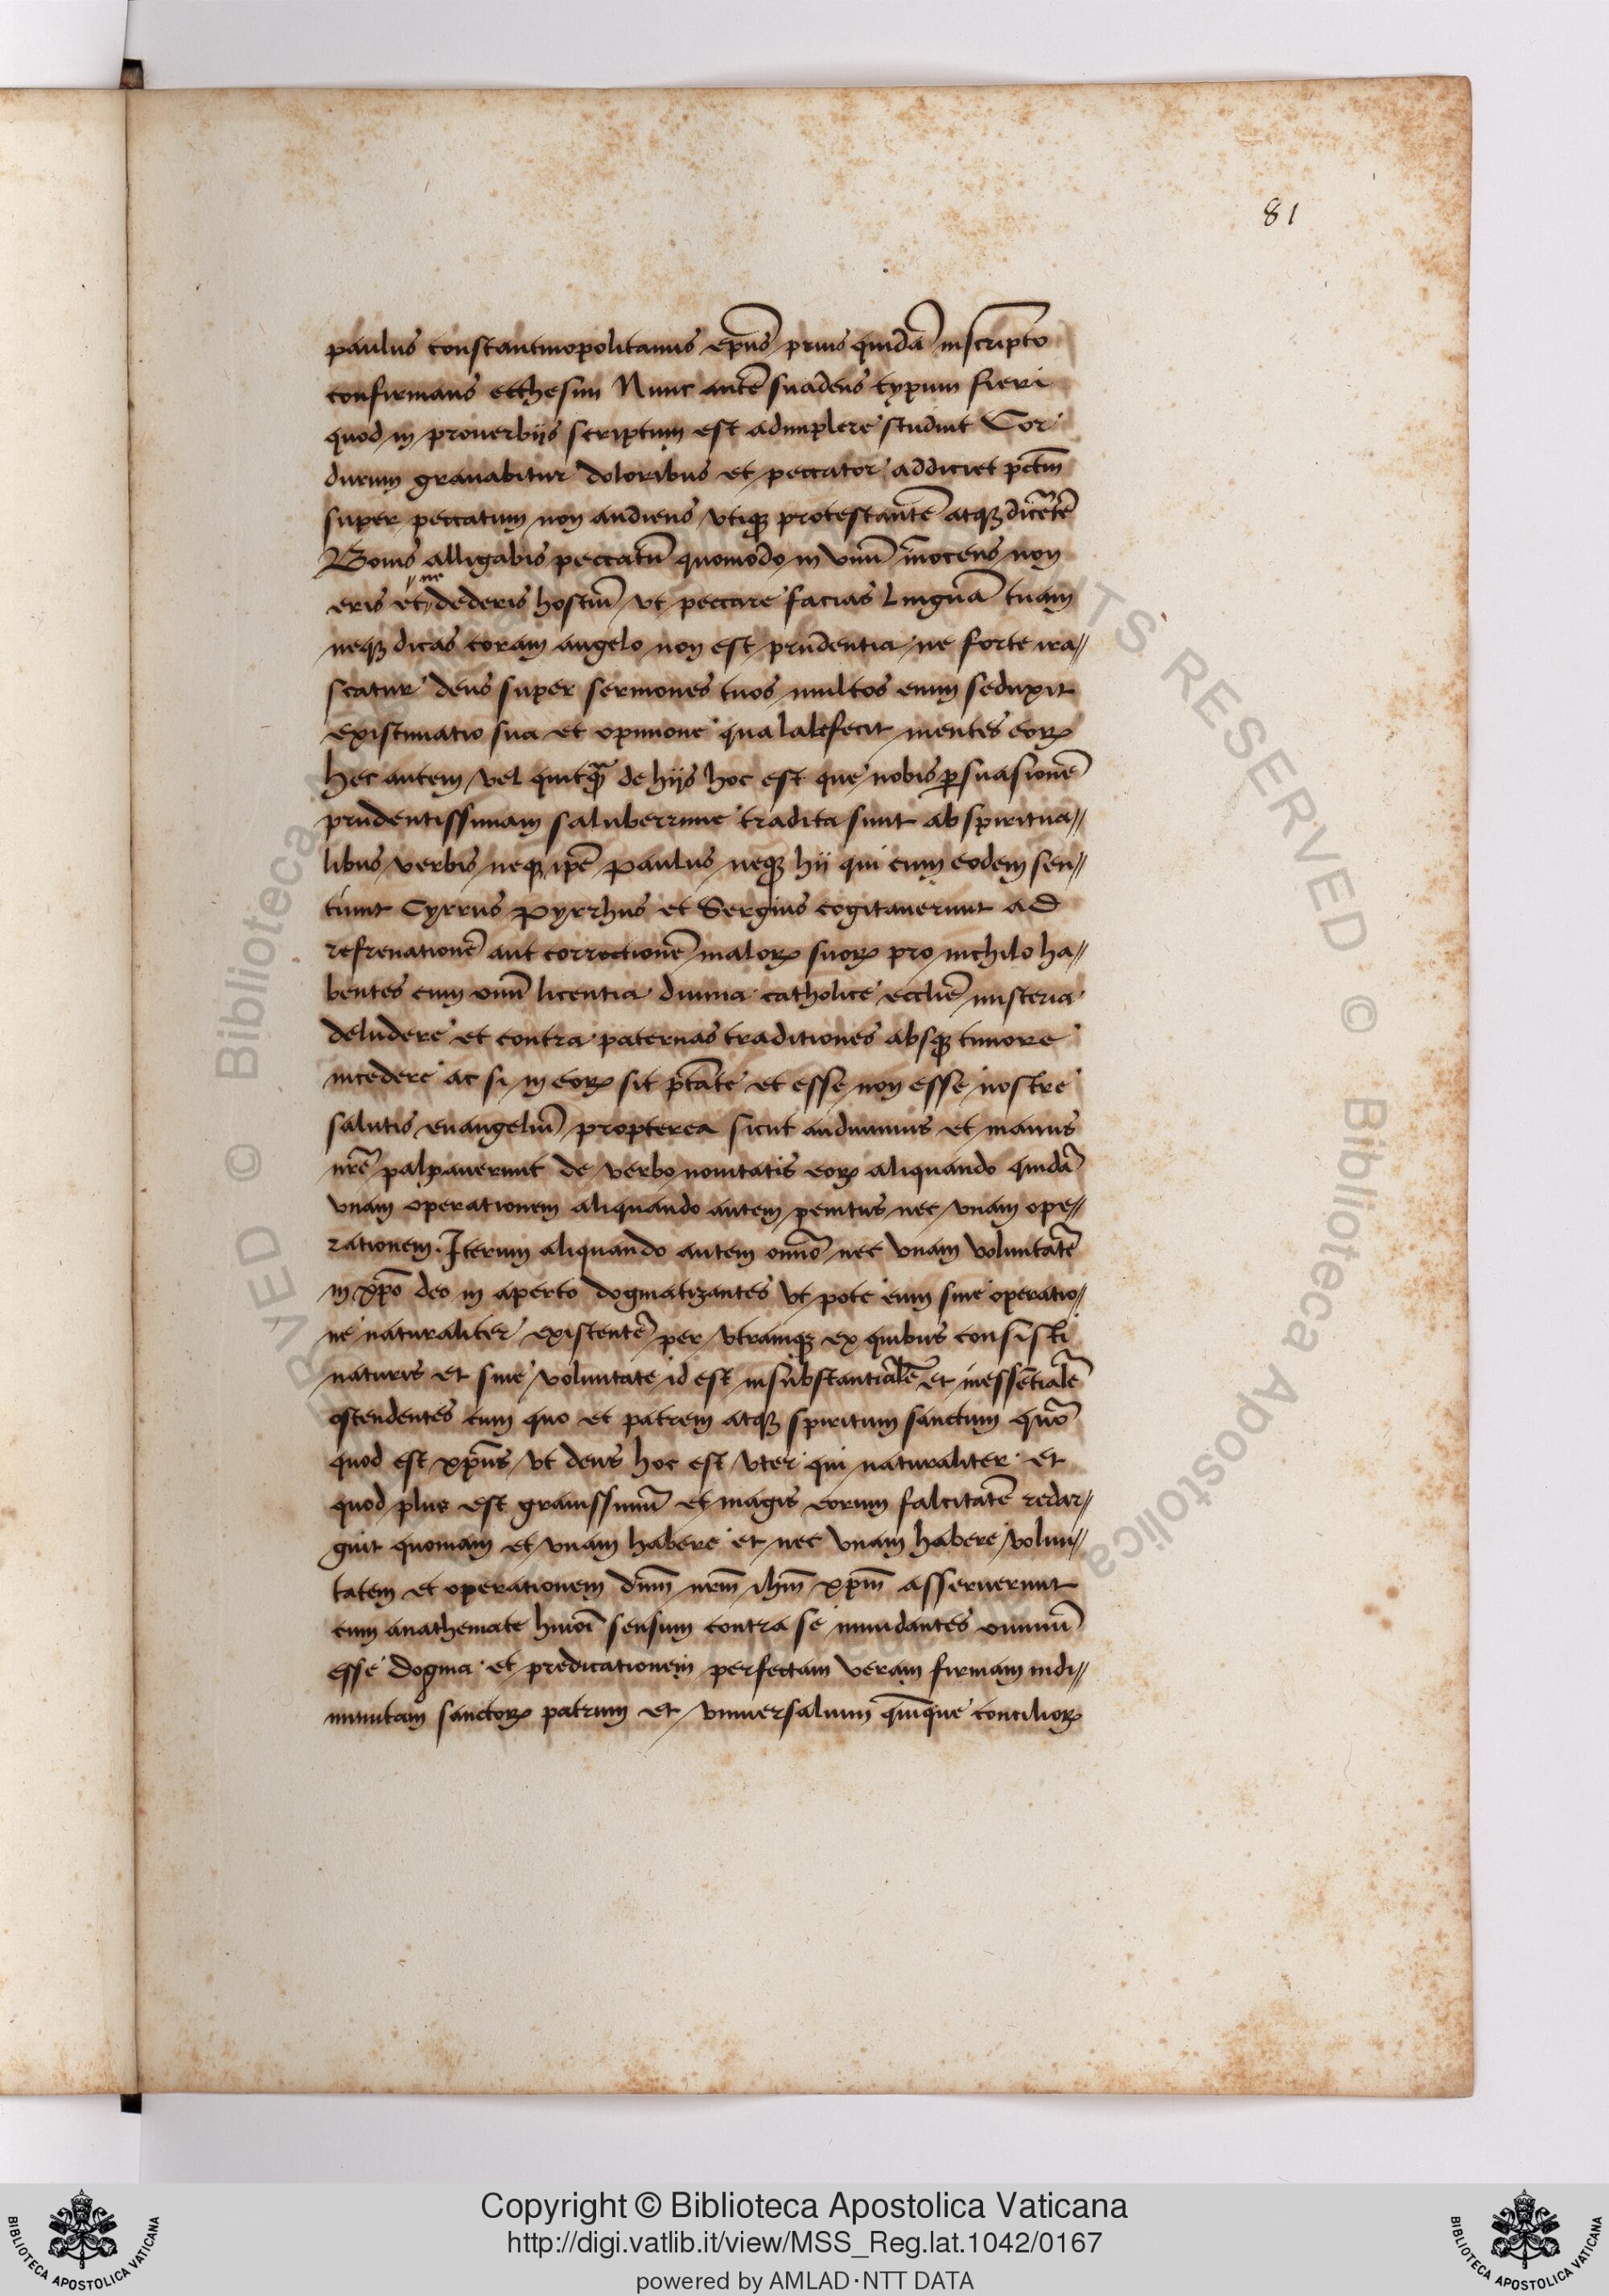 81
paulus constantinopolitanus ep̃us prius quidã inscripto
confirmans ecthesim Nunc autẽ suadens typum fieri
quod in prouerbijs scriptum est adimplere studuit Cor
durum grauabitur doloribus et peccator addiciet pctm̃
super peccatum non audiens vtiqꝫ protestantẽ atqꝫ dicẽtẽ
Bonis alligabis peccatũ quomodo in vnũ ĩnocens non
eris et ne dederis hostiũ vt peccare facias Linguã tuam
neqꝫ dicas coram angelo non est prudentia ne forte ira//
scatur deus super sermones tuos multos enim seduxit
existimatio sua et opinione qua labefecit mentes eoꝝ
hec autem vel quitq̃ de hijs hoc est que nobis ꝑsuasionẽ
prudentissimam saluberrime tradita sunt ab spiritua//
libus verbis neqꝫ ip̃e Paulus neqꝫ hij qui cum eodem sen//
tiunt Cyrrus Pyrrhus et Sergius cogitauerunt ad
refrenationẽ aut correctionẽ maloꝝ suoꝝ pro nichilo ha//
bentes cum omĩ licentia diuina catholice eccliẽ misteria
deludere et contra paternas traditiones absqꝫ timore
incedere ac si in eoꝝ sit ptãte et esse non esse nostre
salutis euangeliũ propterea sicut audiuimus et manus
nrẽ palpauerunt de verbo nouitatis eoꝝ aliquando quidã
vnam operationem aliquando autem penitus nec vnam ope//
rationem. Iterum aliquando autem omĩo nec vnam voluntatẽ
in xp̃o deo in aperto dogmatizantes vt pote eum sine operatio//
ne naturaliter existentẽ per vtramqꝫ ex quibus consisti
naturis et sine voluntate id est insubstantialẽ et inessẽtialẽ
ostendentes cum quo et patrem atqꝫ spiritum sanctum quõ
quod est xp̃us vt deus hoc est vter qui naturaliter et
quod plus est grauissimũ et magis eorum falcitatẽ redar//
guit quoniam et vnam habere et nec vnam habere volun//
tatem et operationem dnm̃ nrm̃ ihm̃ xpm̃ asseruerunt
cum anathemate hmõi sensum contra se mundantes omniũ
esse dogma et predicationem perfectam veram firmam indi//
minutam sanctoꝝ patrum et vniuersalium quĩque concilioꝝ
Copyright © Biblioteca Apostolica Vaticana
http://digi.vatlib.it/view/MSS_Reg.lat.1042/0167
powered by AMLAD·NTT DATA